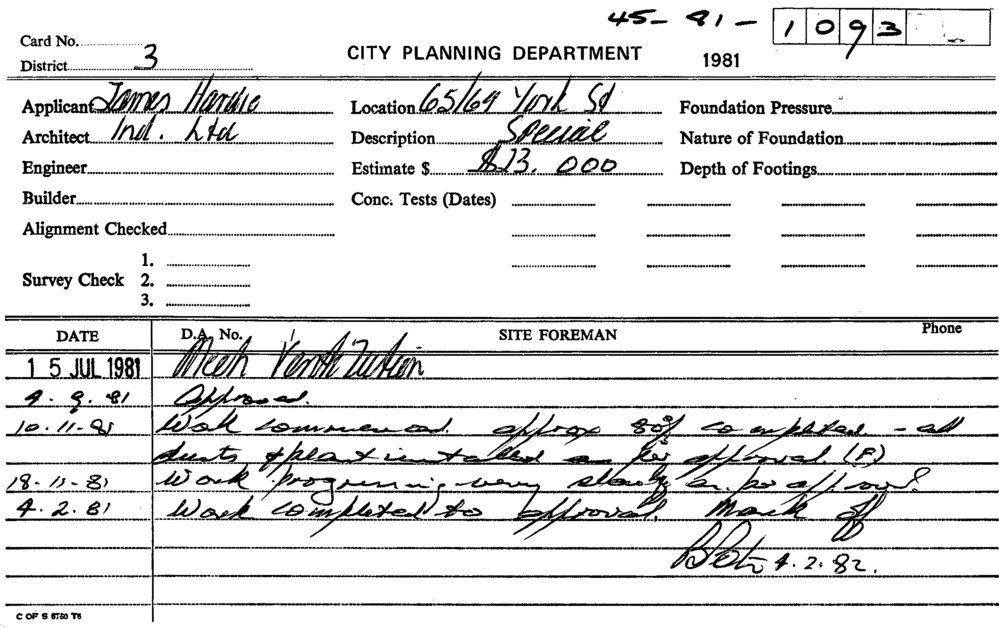 45-81-1093
Card No.
CITY PLANNING DEPARTMENT 1981
District 3
Applicant James Hardie Location 65/69 York St Foundation Pressure
Architect Ind. Ltd Description Special Nature of Foundation
Engineer Estimate $ $23,000 Depth of Footings
Builder Conc. Tests (Dates)
Alignment Checked
1.
Survey Check 2.
3.
DATE D.A. No. SITE FOREMAN Phone
15 JUL 1981 Mech Ventilation
4.9.81 Approved.
10.11.81 Work commenced. approx 80% completed - all
ducts & plant installed as per approval. (P)
18-11-81 Work progressing very slowly as per approval.
4.2.81 Work completed to approval. Mark off
4.2.82.
C OF S 6750 T6